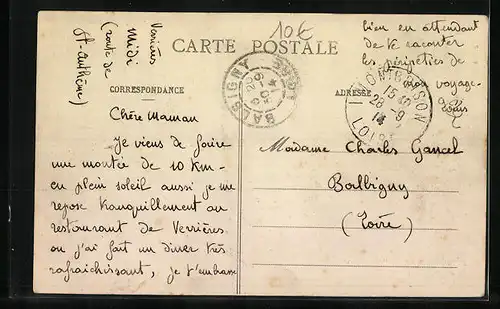 Verrières
Midi
(route de
St-Anthème)
10€
CARTE POSTALE
CORRESPONDANCE
ADRESSE
Chère Maman
Je viens de faire
une montée de 10 km-
en plein soleil aussi je me
repose tranquillement au
restaurant de Verrières
ou j'ai fait un diner très
rafraichissant, je t'embrasse
bien en attendant
de te raconter
les péripéties de
mon voyage-
Louis
BALBIGNY
LOIRE
MONTBRISON
15
28-9
LOIRE
Madame Charles Gancel
Balbigny
(Loire)